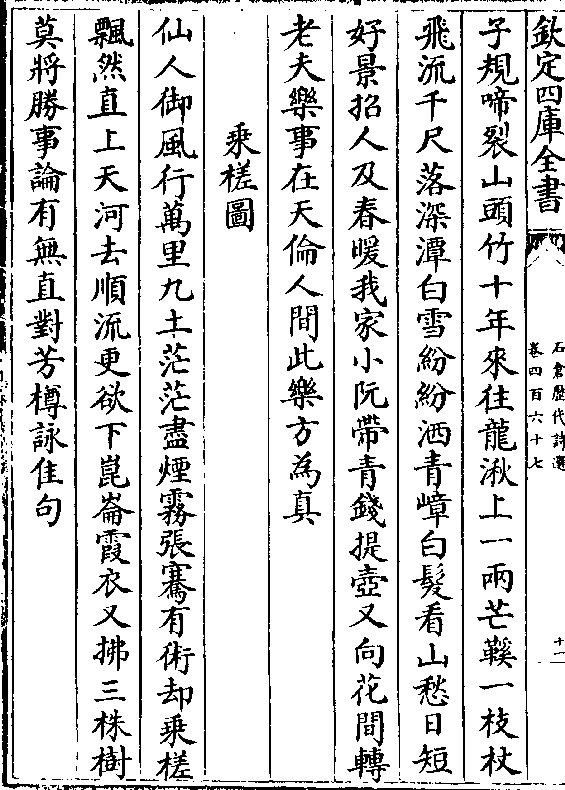 欽定四庫全書
石倉歷代詩選
卷四百六十七
十一
子規啼裂山頭竹十年來往龍湫上一兩芒鞵一枝杖
飛流千尺落深潭白雪紛紛洒青嶂白髮看山愁日短
好景招人及春暖我家小阮帶青錢提壺又向花間轉
老夫樂事在天倫人間此樂方為真
乘槎圖
仙人御風行萬里九土茫茫盡煙霧張騫有術却乘槎
飄然直上天河去順流更欲下崑崙霞衣又拂三株樹
莫將勝事論有無直對芳樽詠佳句